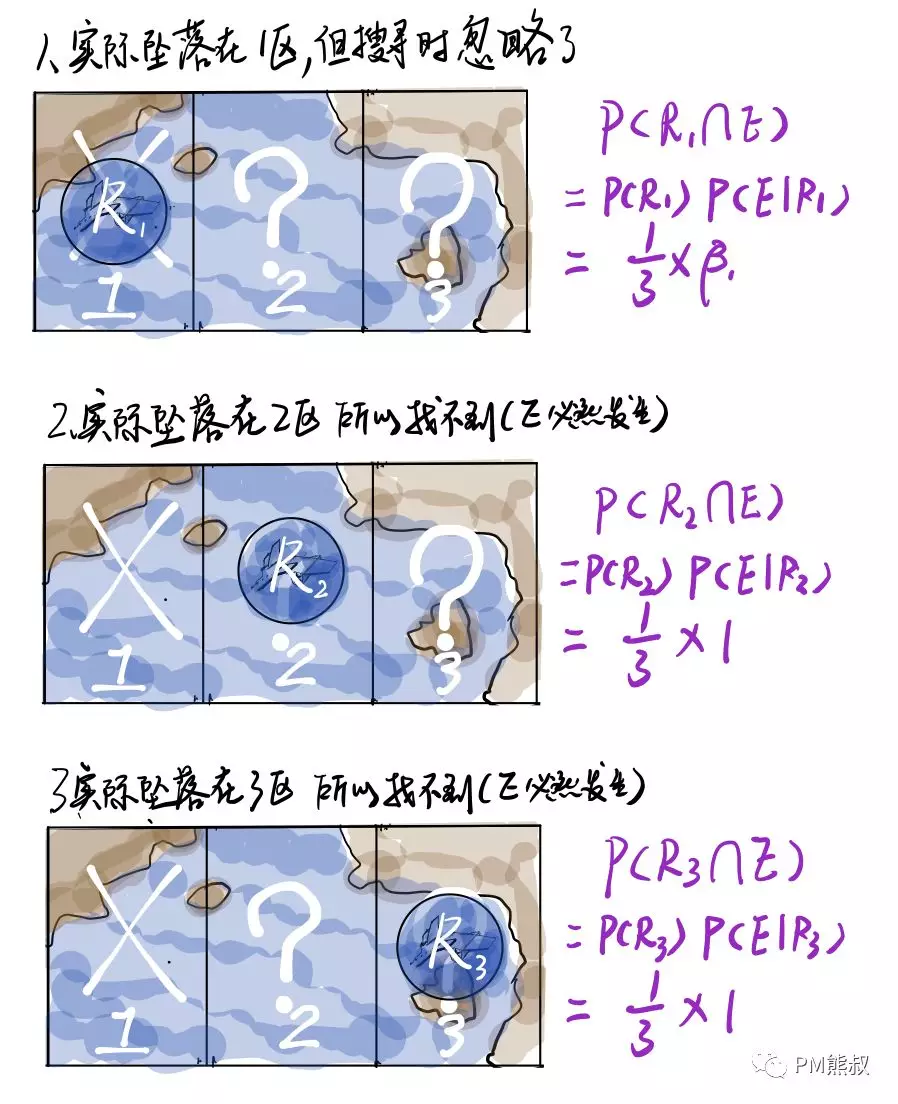 1、实际坠落在1区,但搜寻时忽略了
R₁ ? ?
1 2 3
P(R₁∩E)
= P(R₁) P(E|R₁)
= 1/3 × β₁
2、实际坠落在2区 所以找不到(E必然发生)
R₂ ?
1 2 3
P(R₂∩E)
=P(R₂) P(E|R₂)
= 1/3 × 1
3实际坠落在3区 所以找不到(E必然发生)
? R₃
1 2 3
P(R₃∩E)
= P(R₃) P(E|R₃)
= 1/3 × 1
PM熊叔